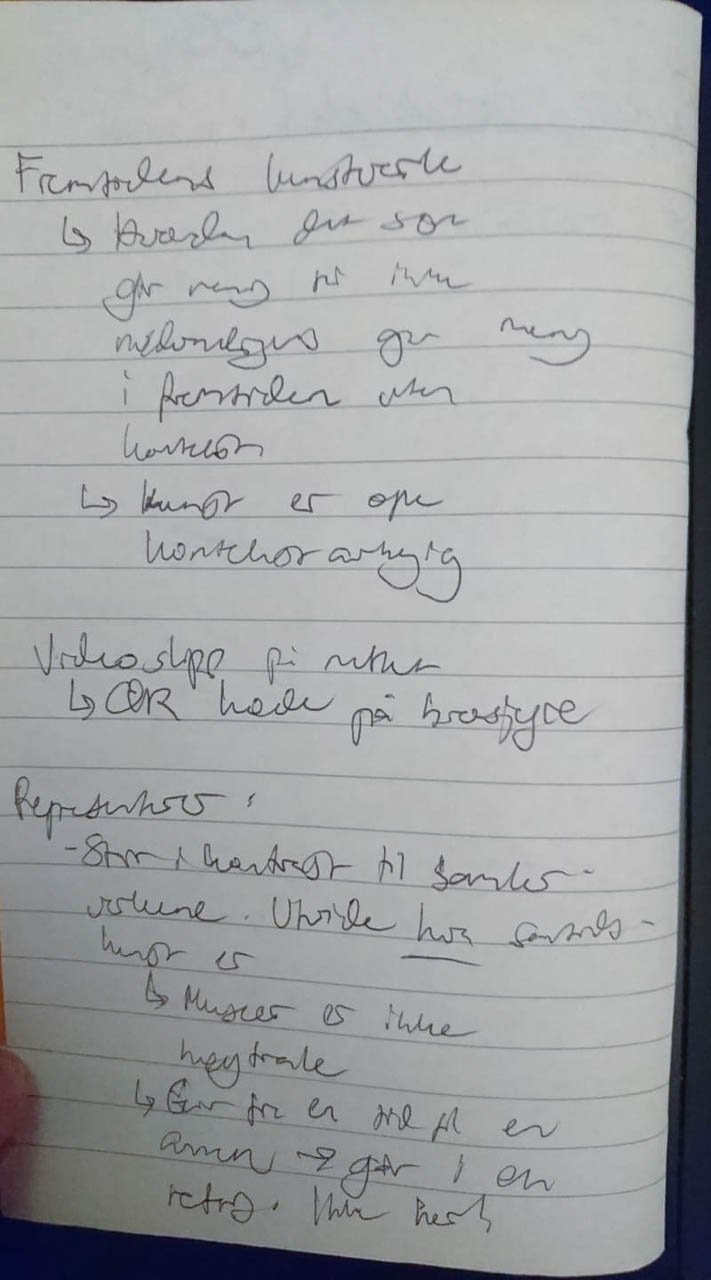 Fremtidens kunstverk
↳ Hvordan det som
gir mening nå ikke
nødvendigvis gir mening
i fremtiden uten
kontekst
↳ Kunst er ofte
kontekstavhengig
Videoslipp på nettet
↳ QR kode på
:
- Står i kontrast til samler-
Utvide hva samtids-
kunst er
↳ Museer er ikke
nøytrale
↳ Går fra en tid til en
annen → går i en
retning. Ikke